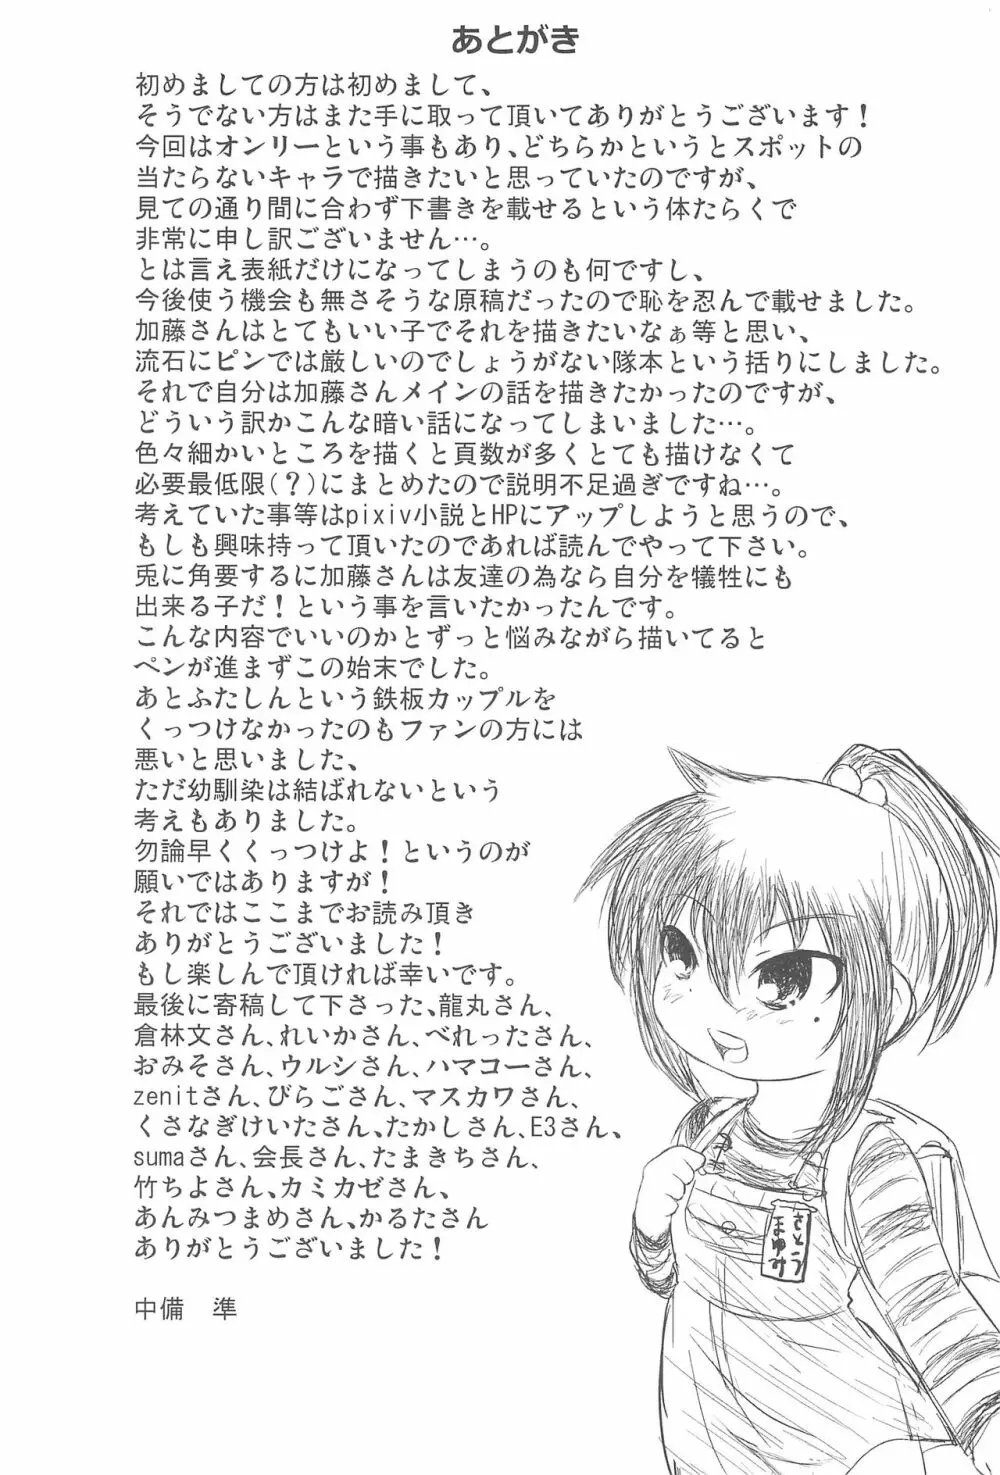 あとがき
初めましての方は初めまして、
そうでない方はまた手に取って頂いてありがとうございます！
今回はオンリーという事もあり、どちらかというとスポットの
当たらないキャラで描きたいと思っていたのですが、
見ての通り間に合わず下書きを載せるという体たらくで
非常に申し訳ございません…。
とは言え表紙だけになってしまうのも何ですし、
今後使う機会も無さそうな原稿だったので恥を忍んで載せました。
加藤さんはとてもいい子でそれを描きたいなぁ等と思い、
流石にピンでは厳しいのでしょうがない隊本という括りにしました。
それで自分は加藤さんメインの話を描きたかったのですが、
どういう訳かこんな暗い話になってしまいました…。
色々細かいところを描くと頁数が多くとても描けなくて
必要最低限(？)にまとめたので説明不足過ぎですね…。
考えていた事等はpixiv小説とHPにアップしようと思うので、
もしも興味持って頂いたのであれば読んでやって下さい。
兎に角要するに加藤さんは友達の為なら自分を犠牲にも
出来る子だ！という事を言いたかったんです。
こんな内容でいいのかとずっと悩みながら描いてると
ペンが進まずこの始末でした。
あとふたしんという鉄板カップルを
くっつけなかったのもファンの方には
悪いと思いました、
ただ幼馴染は結ばれないという
考えもありました。
勿論早くくっつけよ！というのが
願いではありますが！
それではここまでお読み頂き
ありがとうございました！
もし楽しんで頂ければ幸いです。
最後に寄稿して下さった、龍丸さん、
倉林文さん、れいかさん、べれったさん、
おみそさん、ウルシさん、ハマコーさん、
zenitさん、びらごさん、マスカワさん、
くさなぎけいたさん、たかしさん、E3さん、
sumaさん、会長さん、たまきちさん、
竹ちよさん、カミカゼさん、
あんみつまめさん、かるたさん
ありがとうございました！
中備　準
さとう
まゆみ